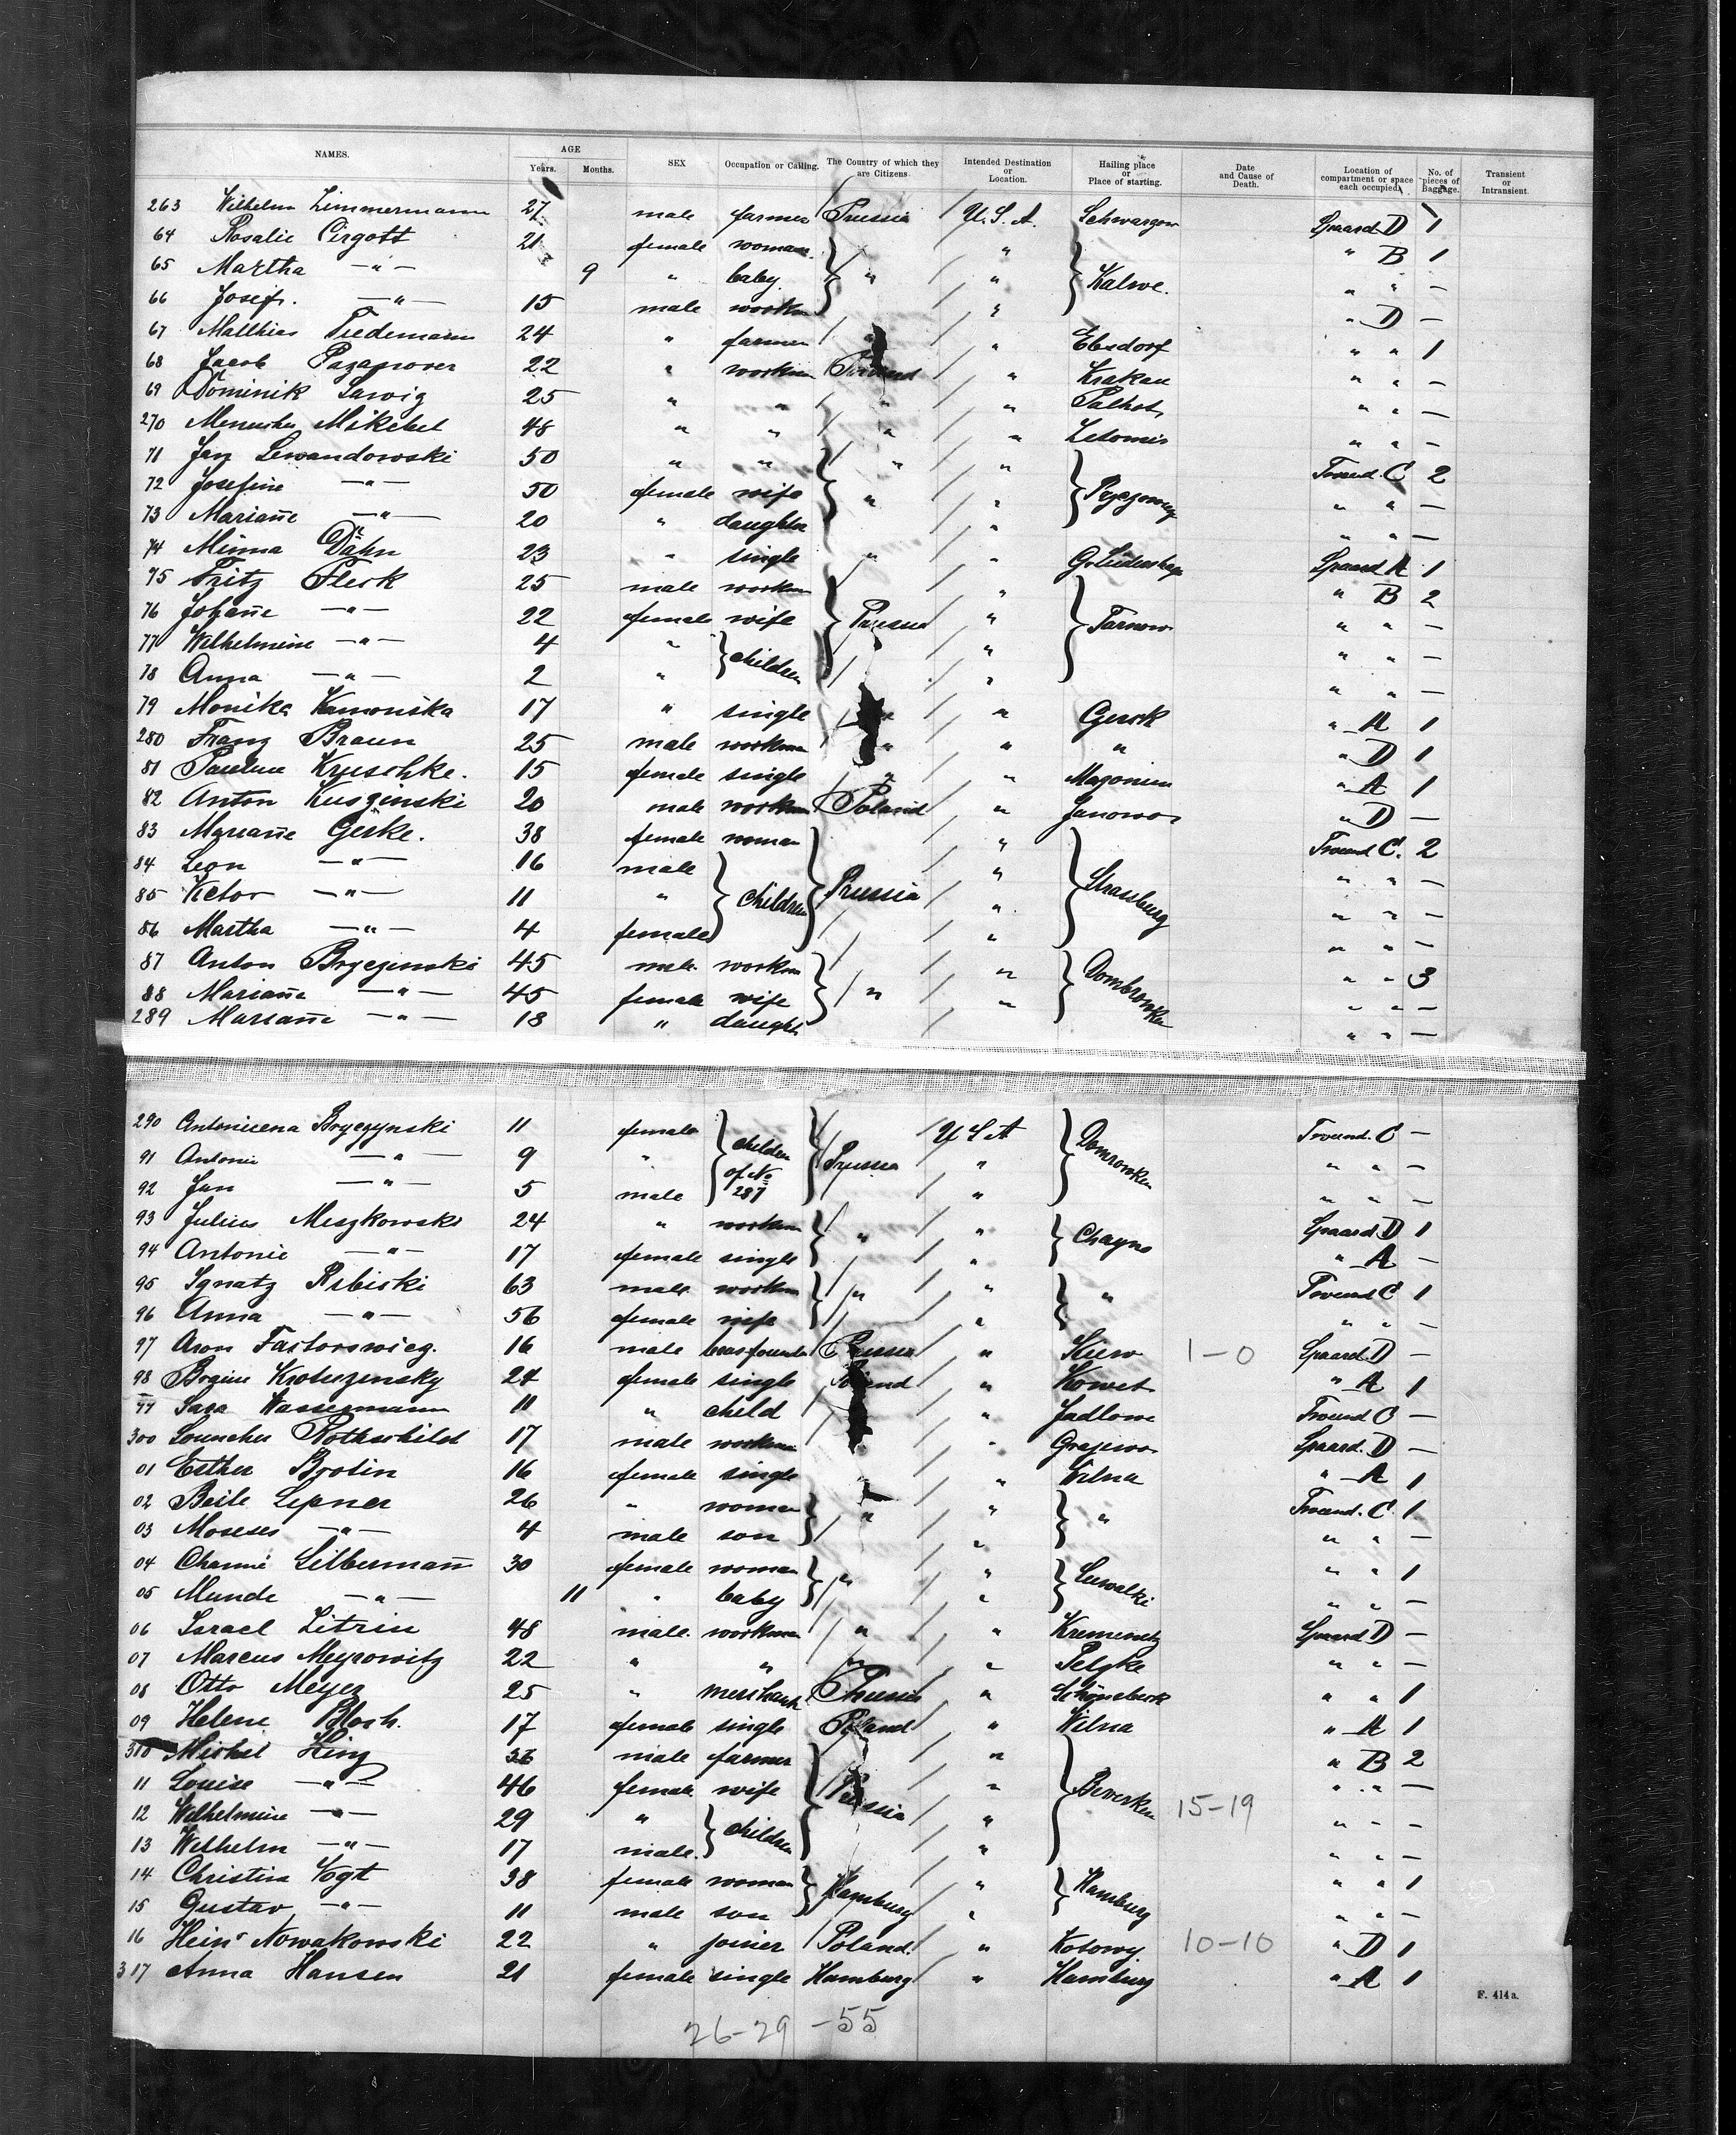 NAMES. AGE Years. Months. SEX Occupation or Calling. The Country of which they are Citizens Intended Destination or Location. Hailing place or Place of starting. Date and Cause of Death. Location of compartment or space each occupied. No. of pieces of Baggage. Transient or Intransient.
263 Wilhelm Zimmermann 27 male farmer Prussia U.S.A. D 1
64 Rosalie Cirgott 21 female woman " " B 1
65 Martha —"— 9 " baby " " Kalwe. " " —
66 Josef. —"— 15 male workm " " D —
67 Matthias Tiedemann 24 " farmer " " Ebsdorf " " 1
68 Jacob 22 " workm Poland " Krakau " " —
69 Dominik 25 " " " " " " —
270 48 " " " " " " —
71 Jan Lewandowski 50 " " " " C 2
72 Josefine —"— 50 female wife " " " " —
73 Mariañe —"— 20 " daughter " " " —
74 Minna Dähn 23 " single " " A 1
75 Fritz Fleck 25 male workm " " B 2
76 Johañe —"— 22 female wife Prussia " Tarnow " " —
77 Wilhelmine —"— 4 " children " " " —
78 Anna —"— 2 " " " " —
79 Monika 17 " single " " " A 1
280 Franz Braun 25 male workman " " " " D 1
81 Pauline Kruschke. 15 female single " " " A 1
82 Anton Kuszinski 20 male workm Poland " Janowo " D —
83 Mariañe Gerke. 38 female woman " C. 2
84 Leon —"— 16 male children Prussia " Strasburg " " —
85 Victor —"— 11 " " " " —
86 Martha —"— 4 female " " " —
87 Anton 45 male workm " " " 3
88 Mariañe —"— 45 female wife " " " " —
289 Mariañe —"— 18 " daught " " —
290 Bryczynski 11 female children of No 287 Prussia U S A C —
91 Antonie —"— 9 " " " " —
92 Jan —"— 5 male " " " —
93 Julius Meszkowski 24 " workm " D 1
94 Antonie —"— 17 female single " " " A —
95 Ignatz Ribiski 63 male workm " " " C 1
96 Anna —"— 56 female wife " " " —
97 Aron 16 male " Kiew 1-0 D —
98 24 female single Poland " " A 1
99 Sara Wassermann 11 " child " C —
300 Rothschild 17 male workm " Grajewo D —
01 Esther Brotin 16 female single " " Wilna " A 1
02 Beile Lepner 26 " woman " " " C. 1
03 Moses —"— 4 male son " " " —
04 Channe Silbermañ 30 female woman " " Suwalki " " 1
05 Munde —"— 11 " baby " " " —
06 Israel Litrin 48 male. workman " " D —
07 Marcus Meyrowitz 22 " " " " " " —
08 Otto Meyer 25 " merchant Prussia " Schönebeck " " 1
09 Helene Bloch. 17 female single Poland " Wilna " A 1
310 Michel male farmer " " B 2
11 Louise —"— 46 female wife Prussia " " " —
12 Wilhelmine —"— 29 " children " 15-19 " " —
13 Wilhelm —"— 17 male. " " " —
14 Christina Vogt 38 female woman Hamburg " Hamburg " " 1
15 Gustav —"— 11 male son " " " —
16 Heinr Nowakowski 22 " joiner Poland. " 10-10 " D 1
317 Anna Hansen 21 female single Hamburg " Hamburg " A 1
F. 414a.
26-29 -55